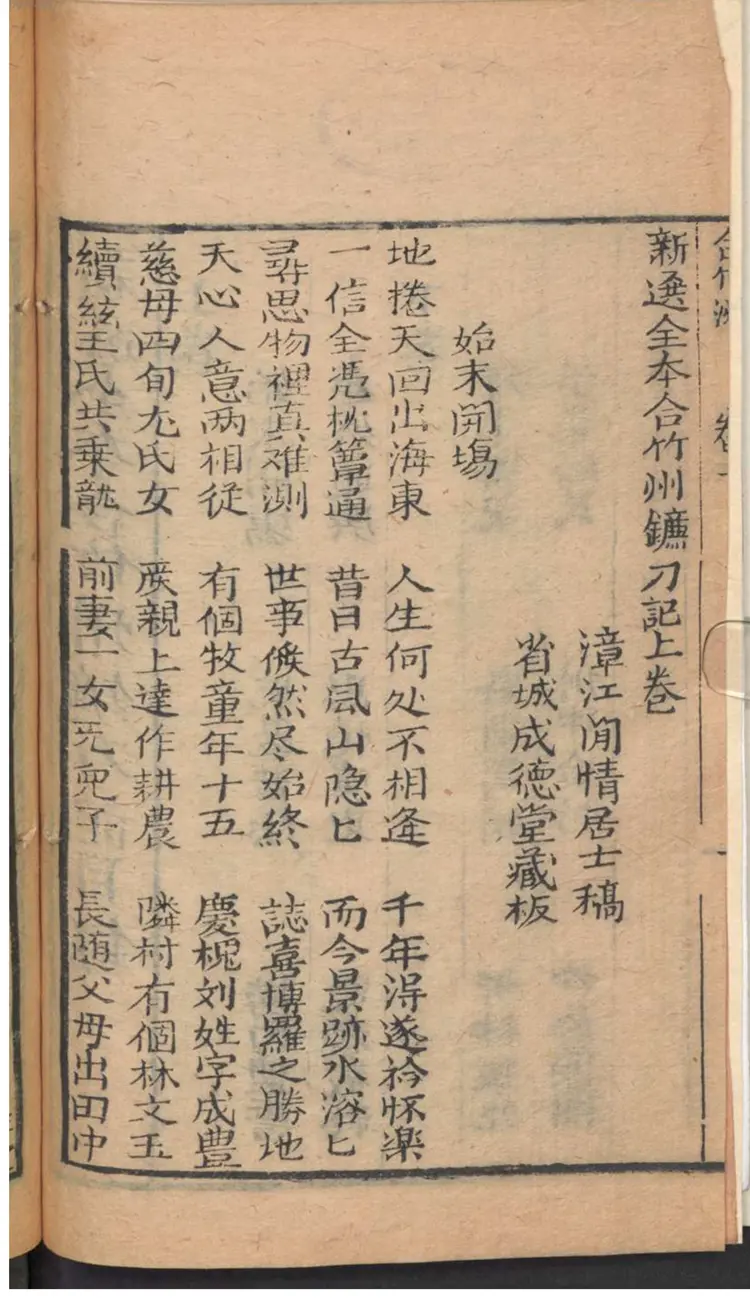 合竹洲 卷一 一
新選全本合竹州鑣刀記上卷
漳江閒情居士稿
省城成德堂藏板
始末開塲
地捲天回出海東 人生何处不相逄 千年淂遂衿怀楽
一信全憑枕簟通 昔日古凮山隐匕 而今景跡水溶匕
尋思物裡真难測 世亊倐然尽始終 誌喜博羅之勝地
天心人意两相従 有個牧童年十五 慶槐刘姓字成豊
慈母四旬尢氏女 嚴親上達作耕農 隣村有個林文玉
續絃王氏共乗龍 前妻一女旡兒子 長随父母出田中